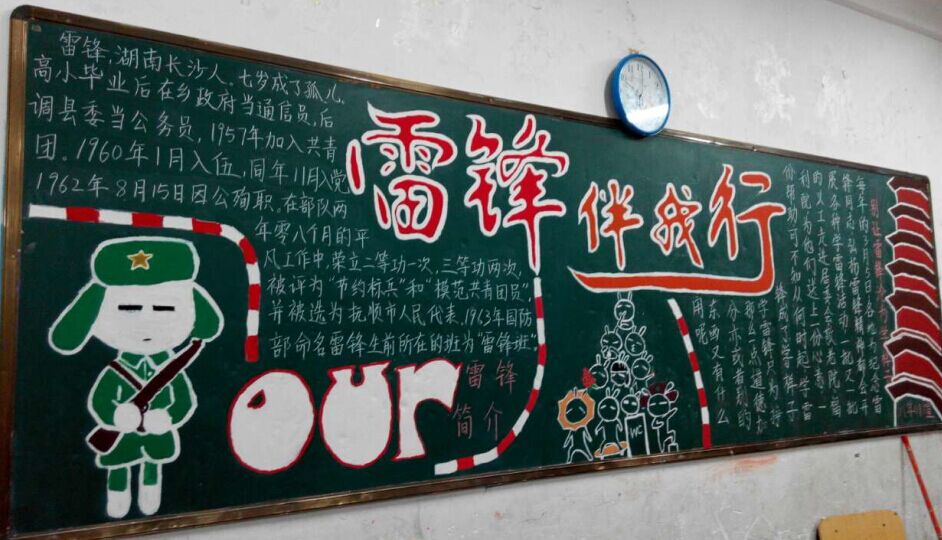 雷锋,湖南长沙人,七岁成了孤儿,
高小毕业后在乡政府当通信员,后
调县委当公务员,1957年加入共青
团。1960年1月入伍,同年11月入党
1962年8月15日因公殉职。在部队两
年零八个月的平
凡工作中,荣立二等功一次,三等功两次,
被评为"节约标兵"和"模范共青团员",
并被选为抚顺市人民代表,1963年国防
部命名雷锋生前所在的班为"雷锋班"
雷锋
伴我行
our
雷锋
简介
别让雷锋
每年的3月5日各地纪念雷
锋月志弘扬雷锋精神都会开
展各种学雷锋活动一批又一批
的义工走进居委会敬老院福
利院为他们送上一份心意一
份帮助可不知从何时起学雷
锋成了学样子
学雷锋只为
东西又有什么
用呢
WC